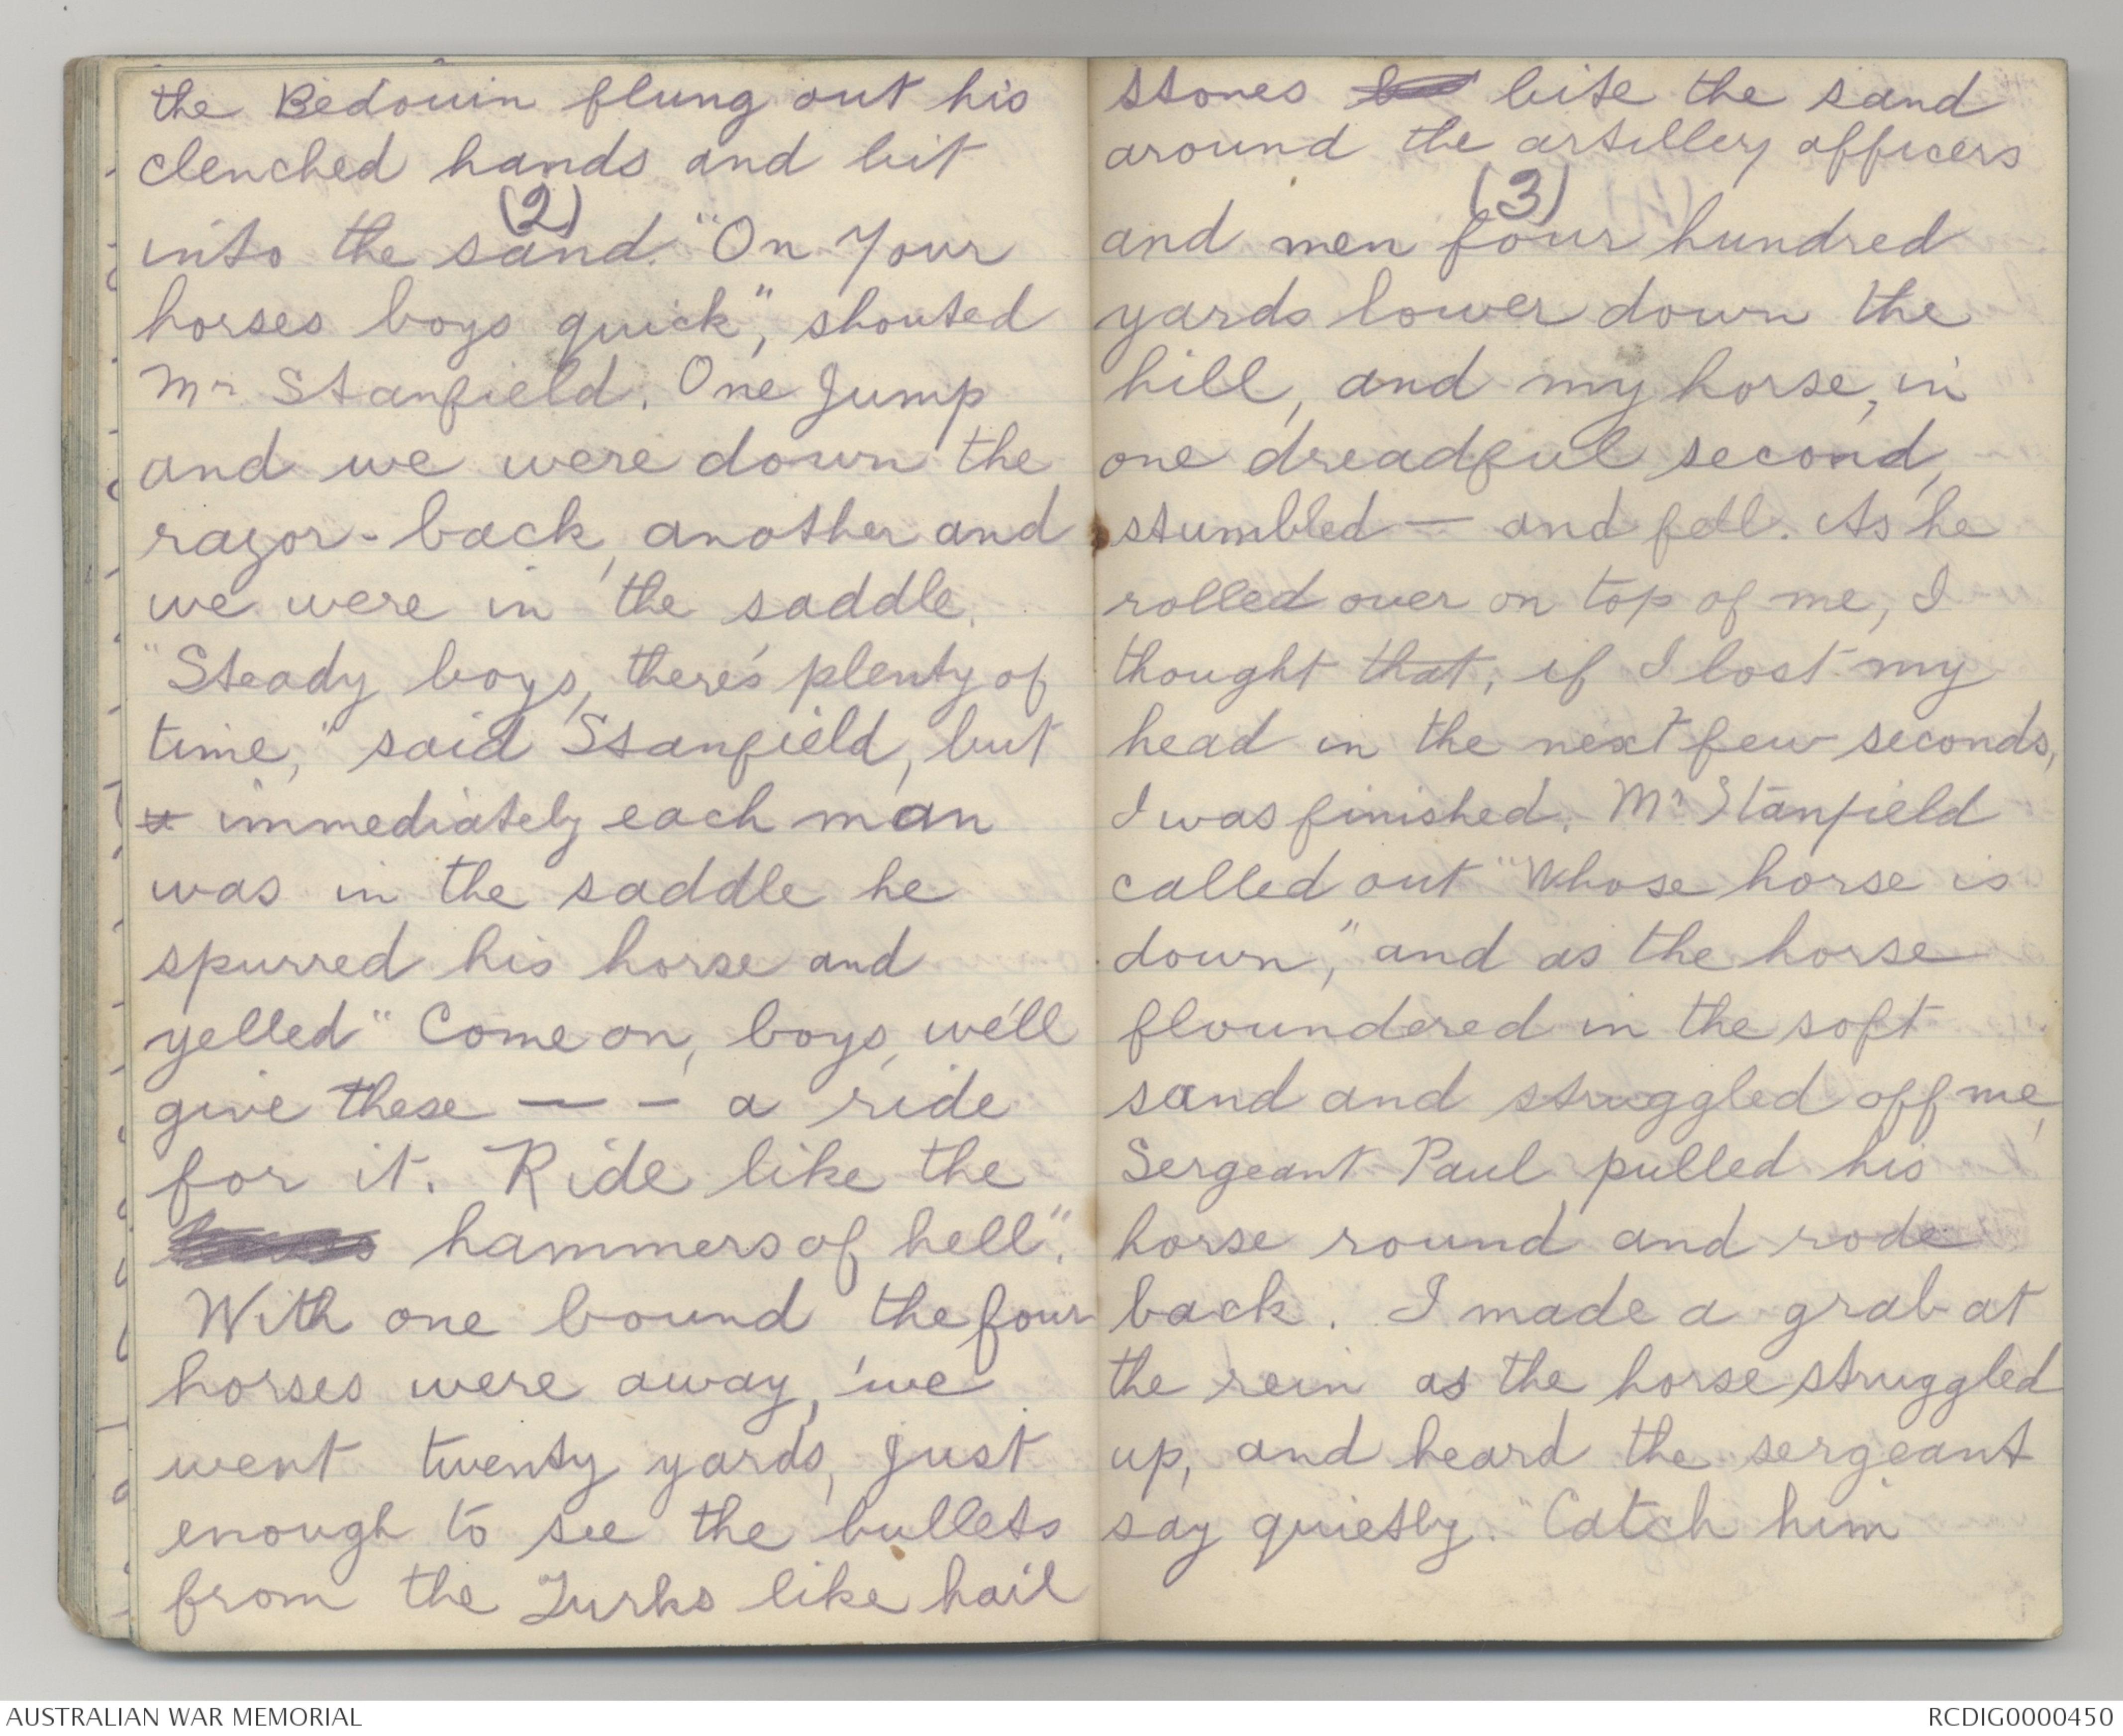 the Bedouin flung out his
clenched hands and bit
(2)
into the sand. "On Your
horses boys quick", shouted
Mr Stanfield. One Jump
and we were down the
razor-back, another and
we were in the saddle.
"Steady boys, there's plenty of
time," said Stanfield, but
immediately each man
was in the saddle he
spurred his horse and
yelled "Come on, boys, we'll
give these — – a ride
for it. Ride like the
hammers of hell".
With one bound the four
horses were away, we
went twenty yards, just
enough to see the bullets
from the Turks like hail
stones bite the sand
around the artillery officers
(3)
and men four hundred
yards lower down the
hill, and my horse, in
one dreadful second,
stumbled — and fell. As he
rolled over on top of me, I
thought that, if I lost my
head in the next few seconds,
I was finished. Mr Stanfield
called out "Whose horse is
down," and as the horse
floundered in the soft
sand and struggled off me,
Sergeant Paul pulled his
horse round and rode
back. I made a grab at
the rein as the horse struggled
up, and heard the sergeant
say quietly. "Catch him
AUSTRALIAN WAR MEMORIAL
RCDIG0000450